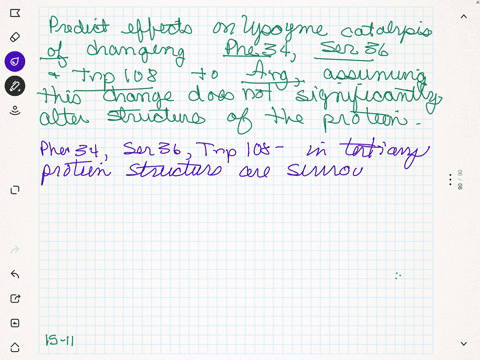 Predict effects on lysozyme catalysis
of changing Phe 34, Ser 36
& Trp 108 to Arg, assuming
this change does not significantly
alter structure of the protein.
Phe 34, Ser 36, Trp 108 - in tertiary
protein structure are surrou
15-11